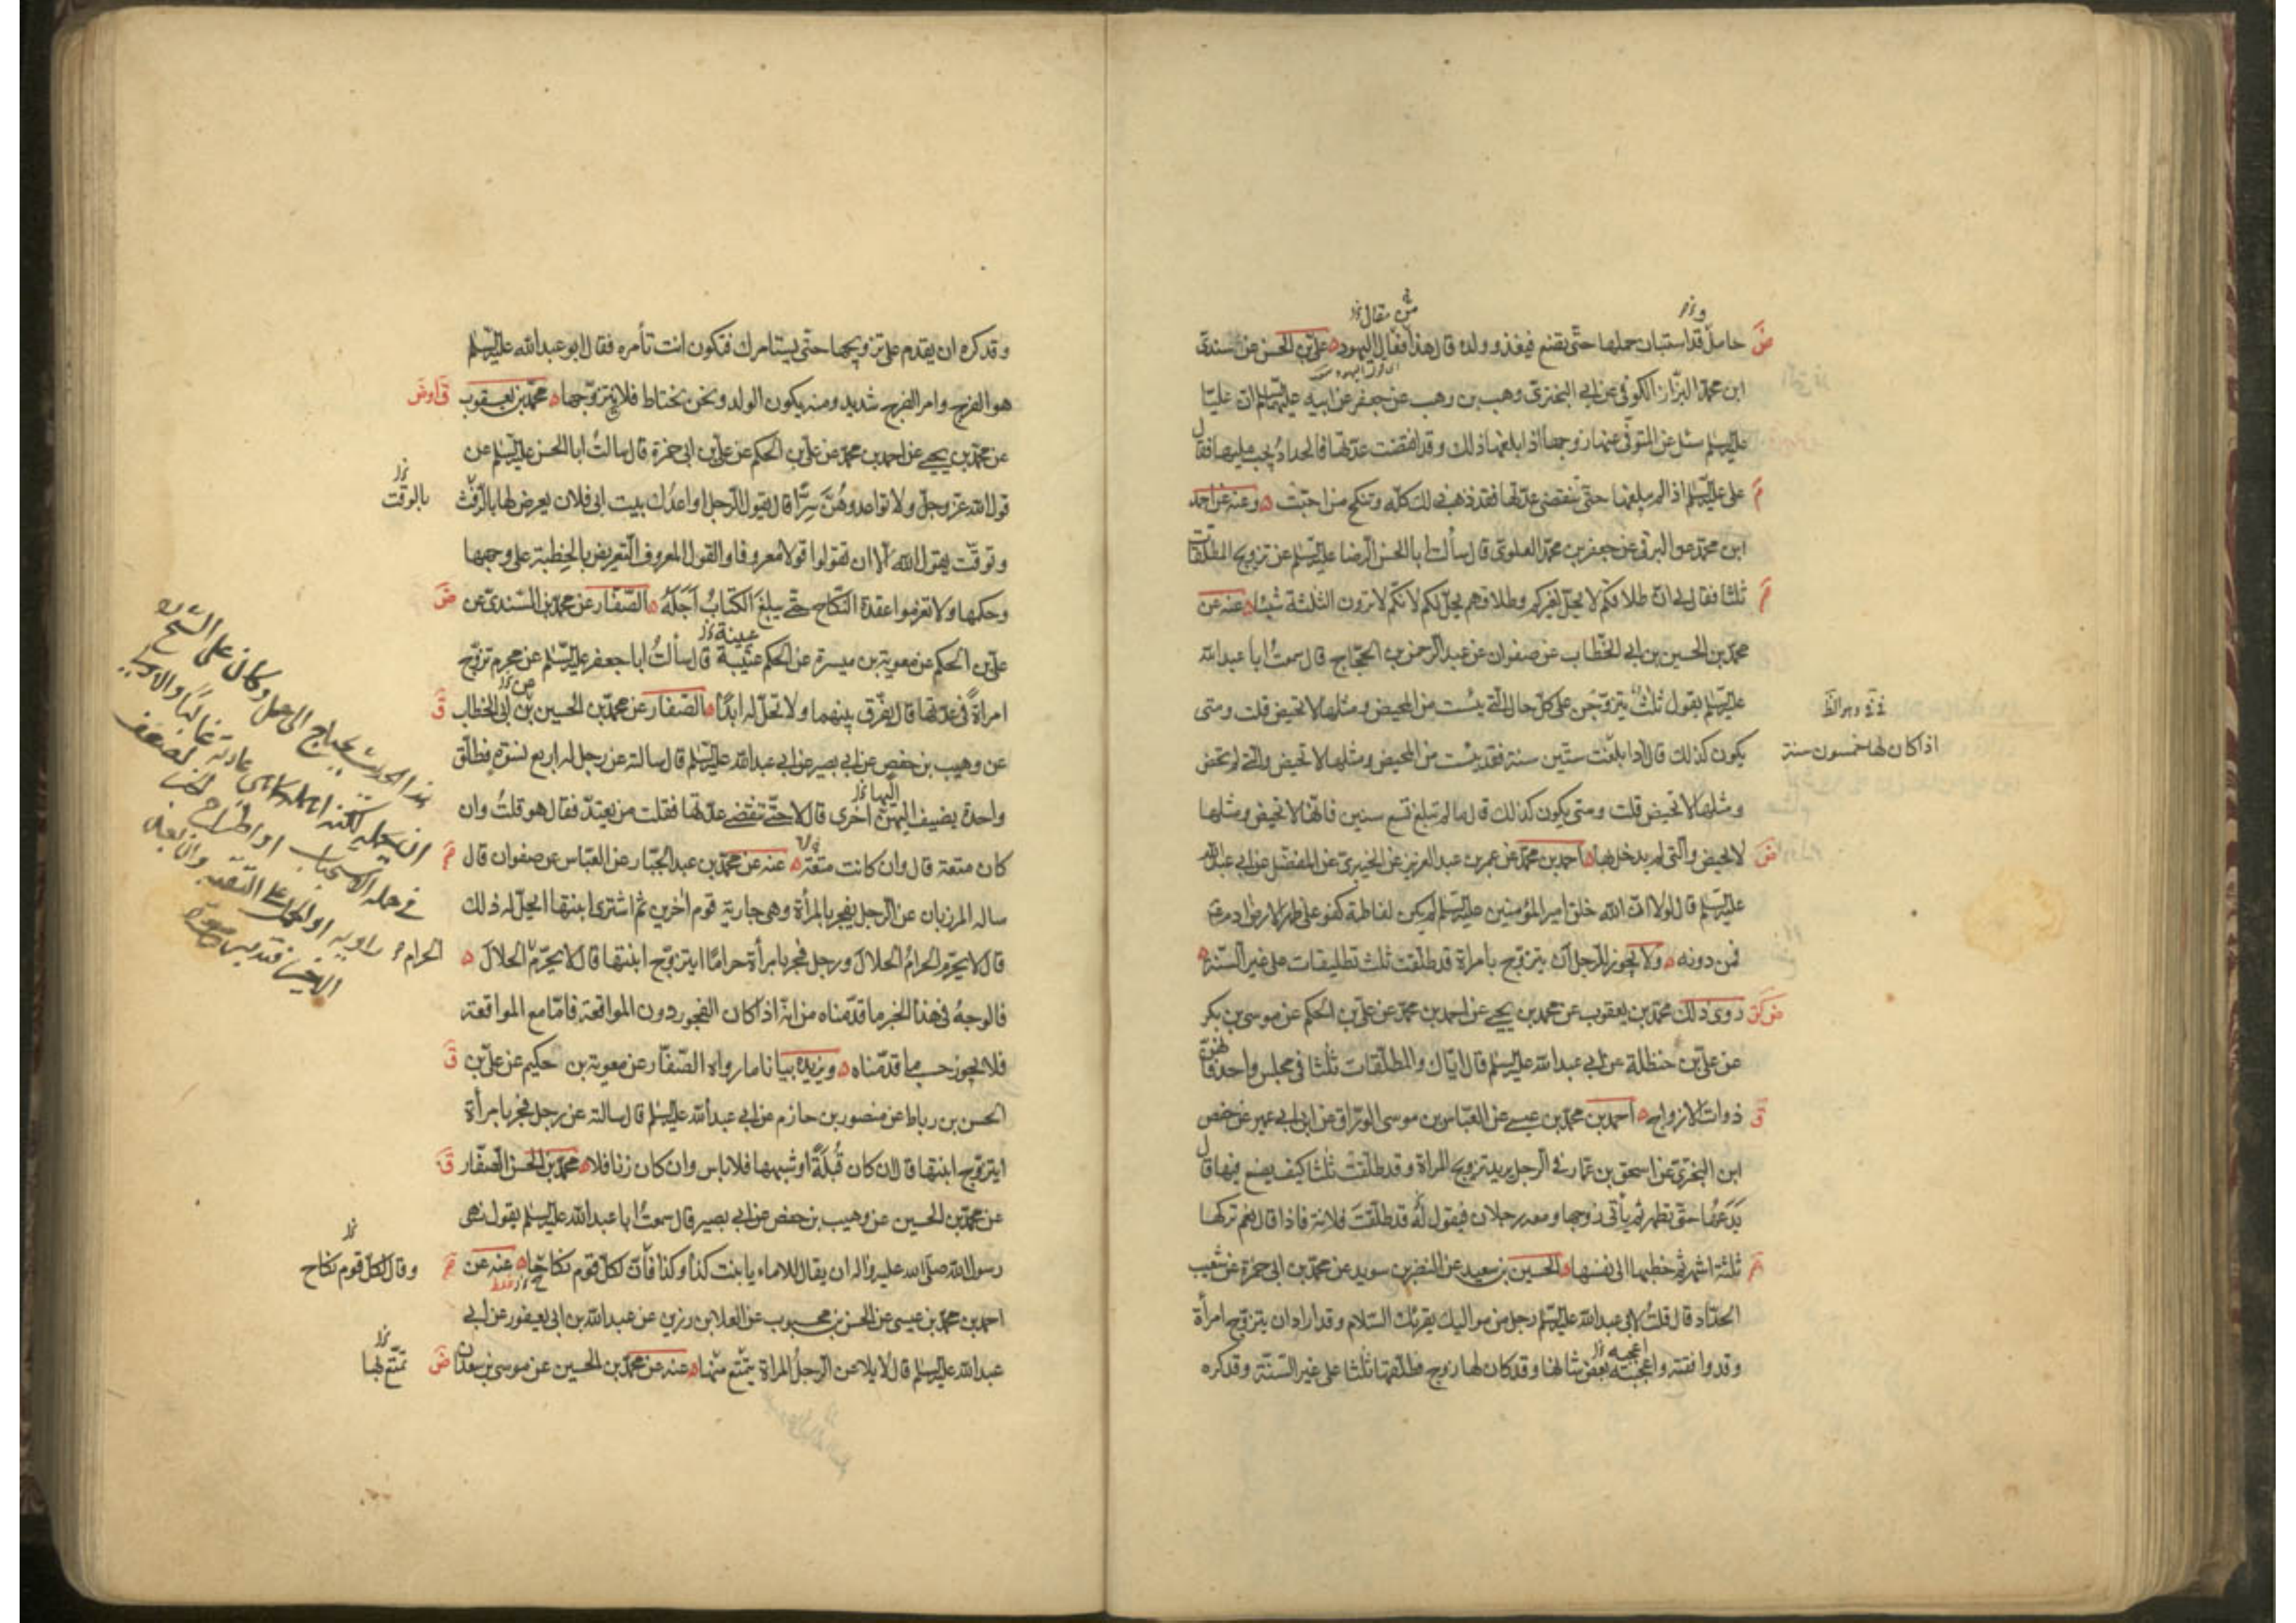 حامل قد استبان حملها حتى تضع فيغذو ولده قال هذا فعال اليهود علي بن الحسن عن سندي
ابن محمد البزاز الكوفي عن ابي البختري وهب بن وهب عن جعفر عن ابيه عليهما السلم ان عليا
عليه السلم سئل عن المتوفى عنها زوجها اذا بلغها ذلك وقد انقضت عدتها فالحداد يجب عليها فقال
على عليه السلم اذا لم يبلغها حتى تنقضي عدتها فقد ذهب ذلك كله وتنكح من احبت وعنه عن احمد
ابن محمد عن البرقي عن جعفر بن محمد العلوي قال سألت ابا الحسن الرضا عليه السلم عن تزويج المطلقات
ثلثا فقال لي ان طلاقكم لا يحل لغيركم وطلاقهم يحل لكم لانكم لا ترون الثلثة شيئا عنه عن
محمد بن الحسين بن ابي الخطاب عن صفوان عن عبد الرحمن بن الحجاج قال سمعت ابا عبد الله
عليه السلم يقول ثلث يتزوجن على كل حال التي يئست من المحيض ومثلها لا تحيض قلت ومتى
يكون كذلك قال اذا بلغت ستين سنة فقد يئست من المحيض ومثلها لا تحيض والتي لم تحض
اذا كان لها خمسون سنة
ومثلها لا تحيض قلت ومتى يكون كذلك قال ما لم تبلغ تسع سنين فانها لا تحيض ومثلها
لا تحيض والتي لم يدخل بها احمد بن محمد عن عمر بن عبد العزيز عن الخيبري عن المفضل عن ابي عبد الله
عليه السلم قال لولا ان الله خلق امير المؤمنين عليه السلم لم يكن لفاطمة كفو على ظهر الارض ادم
فمن دونه ولا يجوز للرجل ان يتزوج بامراة قد طلقت ثلث تطليقات على غير السنة
روى ذلك محمد بن يعقوب عن محمد بن يحيى عن احمد بن محمد عن علي بن الحكم عن موسى بن بكر
عن علي بن حنظلة عن ابي عبد الله عليه السلم قال اياك والمطلقات ثلثا في مجلس واحد فانهن
ذوات الازواج احمد بن محمد بن عيسى عن العباس بن موسى الوراق عن ابن ابي عمير عن حفص
ابن البختري عن اسحق بن عمار في الرجل يريد تزويج المراة وقد طلقت ثلثا كيف يصنع فيها قال
يدعها حتى تطهر ثم يأتي زوجها ومعه رجلان فيقول له قد طلقت فلانة فاذا قال نعم تركها
ثلثة اشهر ثم خطبها الى نفسها الحسين بن سعيد عن النضر بن سويد عن محمد بن ابي حمزة عن شعيب
الحداد قال قلت لابي عبد الله عليه السلم رجل من مواليك يقرئك السلام وقد اراد ان يتزوج امرأة
وقد وافقته واعجبته بعض شانها وقد كان لها زوج فطلقها ثلثا على غير السنة وقد كره
وقد كره ان يقدم على تزويجها حتى يستامرك فتكون انت تأمره فقال ابو عبد الله عليه السلم
هو الفرج وامر الفرج شديد ومنه يكون الولد ونحن نحتاط فلا يتزوجها محمد بن يعقوب
عن محمد بن يحيى عن احمد بن محمد عن علي بن الحكم عن علي بن ابي حمزة قال سالت ابا الحسن عليه السلم عن
قول الله عز وجل ولا تواعدوهن سرا قال يقول الرجل اواعدك بيت ابي فلان يعرض لها بالرفث
ويوقت يقول الله الا ان تقولوا قولا معروفا والقول المعروف التعريض بالخطبة على وجهها
وحكمها ولا تعزموا عقدة النكاح حتى يبلغ الكتاب اجله الصفار عن محمد بن السندي عن
علي بن الحكم عن معوية بن ميسرة عن الحكم عتيبة قال سألت ابا جعفر عليه السلم عن محرم تزوج
امراة في عدتها قال يفرق بينهما ولا تحل له ابدا الصفار عن محمد بن الحسين بن ابي الخطاب
عن وهيب بن حفص عن ابي بصير عن ابي عبد الله عليه السلم قال سالته عن رجل له اربع نسوة فطلق
واحدة يضيف اليهن اخرى قال لا حتى تنقضي عدتها فقلت من يعتد فقال هو قلت وان
كان متعة قال وان كانت متعة عنه عن محمد بن عبد الجبار عن العباس عن صفوان قال
ساله المرزبان عن الرجل يفجر بالمرأة وهي جارية قوم اخرين ثم اشترى ابنتها ايحل له ذلك
قال لا يحرم الحرام الحلال ورجل فجر بامرأة حراما ايتزوج ابنتها قال لا يحرم الحرام الحلال
فالوجه في هذا الخبر ما قدمناه من انه اذا كان الفجور دون المواقعة فاما مع المواقعة
فلا يجوز حسب ما قدمناه ويزيده بيانا ما رواه الصفار عن معوية بن حكيم عن علي بن
الحسن بن رباط عن منصور بن حازم عن ابي عبد الله عليه السلم قال سالته عن رجل فجر بامرأة
ايتزوج ابنتها قال ان كان قبلة او شبهها فلا باس وان كان زنا فلا محمد بن الحسن الصفار
عن محمد بن الحسين عن وهيب بن حفص عن ابي بصير قال سمعت ابا عبد الله عليه السلم يقول نهى
رسول الله صلى الله عليه واله ان يقال للاماء يا بنت كذا وكذا فان لكل قوم نكاحا عنه عن
وقال لكل قوم نكاح
احمد بن محمد بن عيسى عن الحسن بن محبوب عن العلا بن رزين عن عبد الله بن ابي يعفور عن ابي
عبد الله عليه السلم قال لا يلاعن الرجل المراة يتمتع منها عنه عن محمد بن الحسين عن موسى بن سعدان
تمتع بها